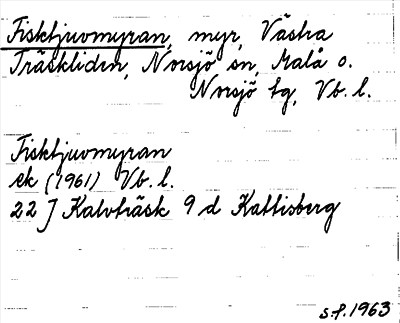 Fisktjuvmyran, myr, Västra
Träskliden, Norsjö sn, Malå o.
Norsjö tg, Vb. l.
Fisktjuvmyran
ek (1961) Vb. l.
22 J Kalvträsk 9 d Kattisberg
s.f. 1963